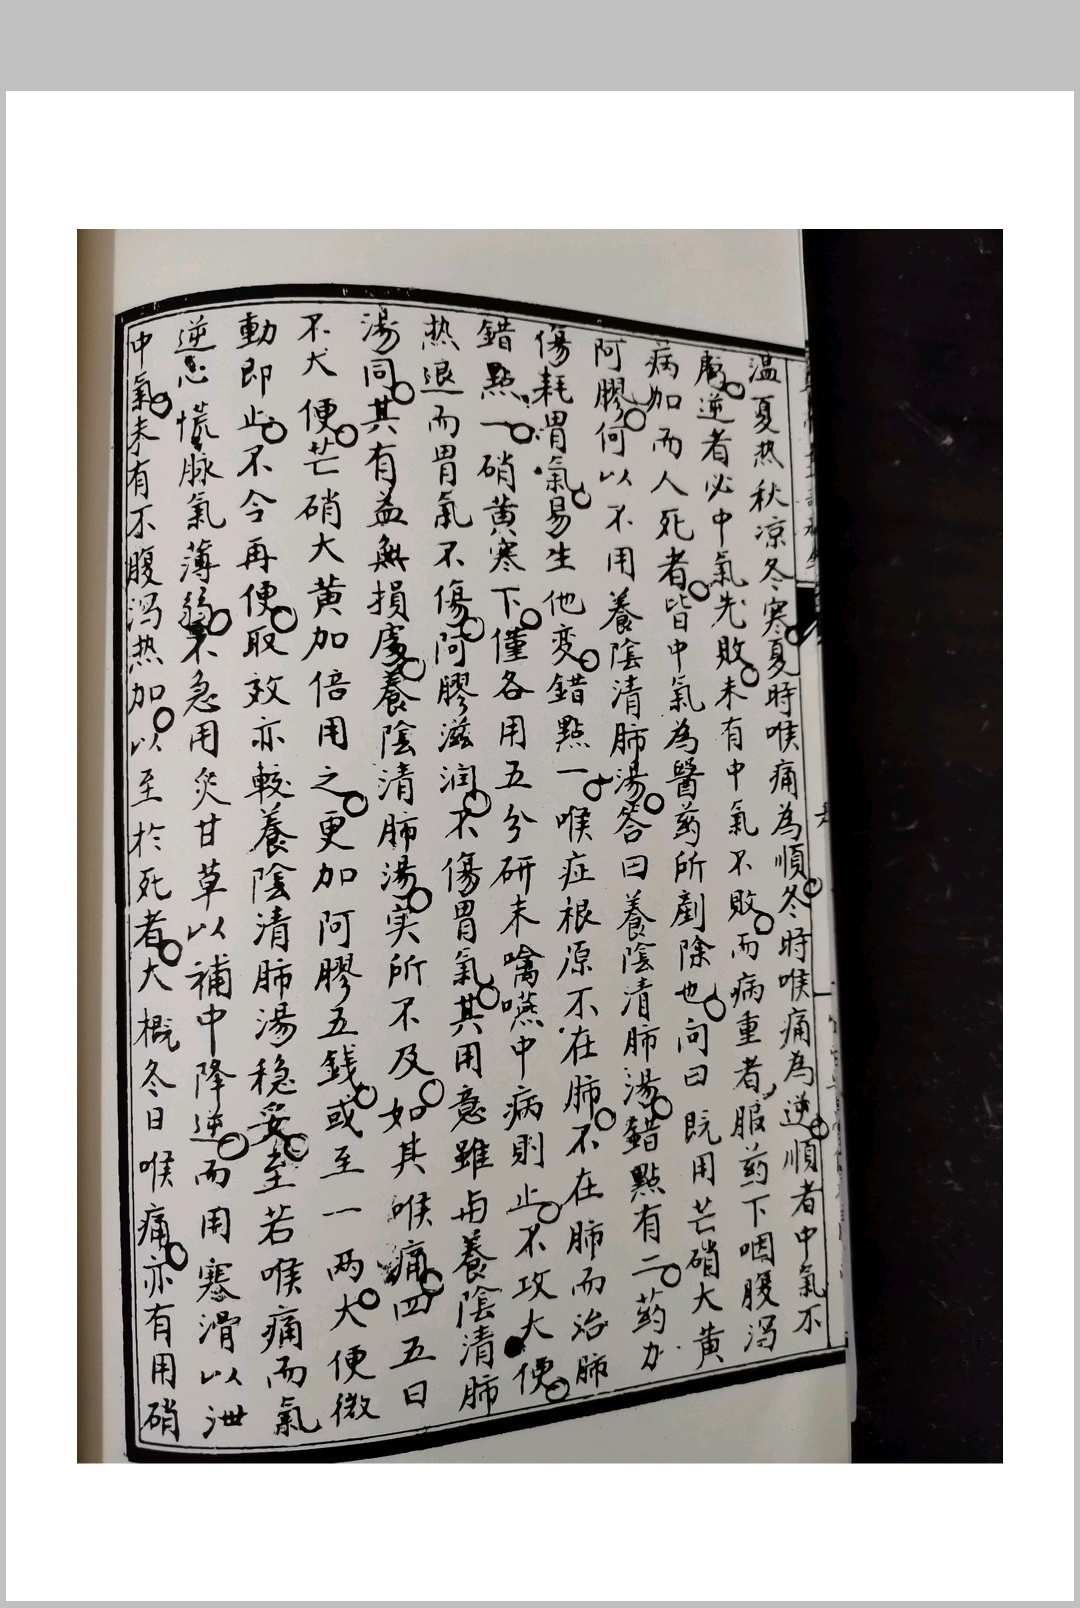 温夏热秋凉冬寒夏時喉痛為順冬時喉痛為逆順者中氣不
虧逆者必中氣先敗未有中氣不敗而病重者服药下咽腹泻
病加而人死者皆中氣為醫药所剷除也问曰既用芒硝大黄
阿膠何以不用養陰清肺湯答曰養陰清肺湯錯點有二药力
傷耗胃氣易生他变錯點一喉症根原不在肺不在肺而治肺
錯點一硝黄寒下僅各用五分研末噙嚥中病則止不攻大便
热退而胃氣不傷阿膠滋润不傷胃氣其用意雖与養陰清肺
湯同其有益無損處養陰清肺湯实所不及如其喉痛四五日
不大便芒硝大黄加倍用之更加阿膠五錢或至一两大便微
動即止不令再便取效亦較養陰清肺湯穏妥至若喉痛而氣
逆心慌脉氣薄弱不急用炙甘草以補中降逆而用寒滑以泄
中氣未有不腹泻热加以至於死者大概冬日喉痛亦有用硝